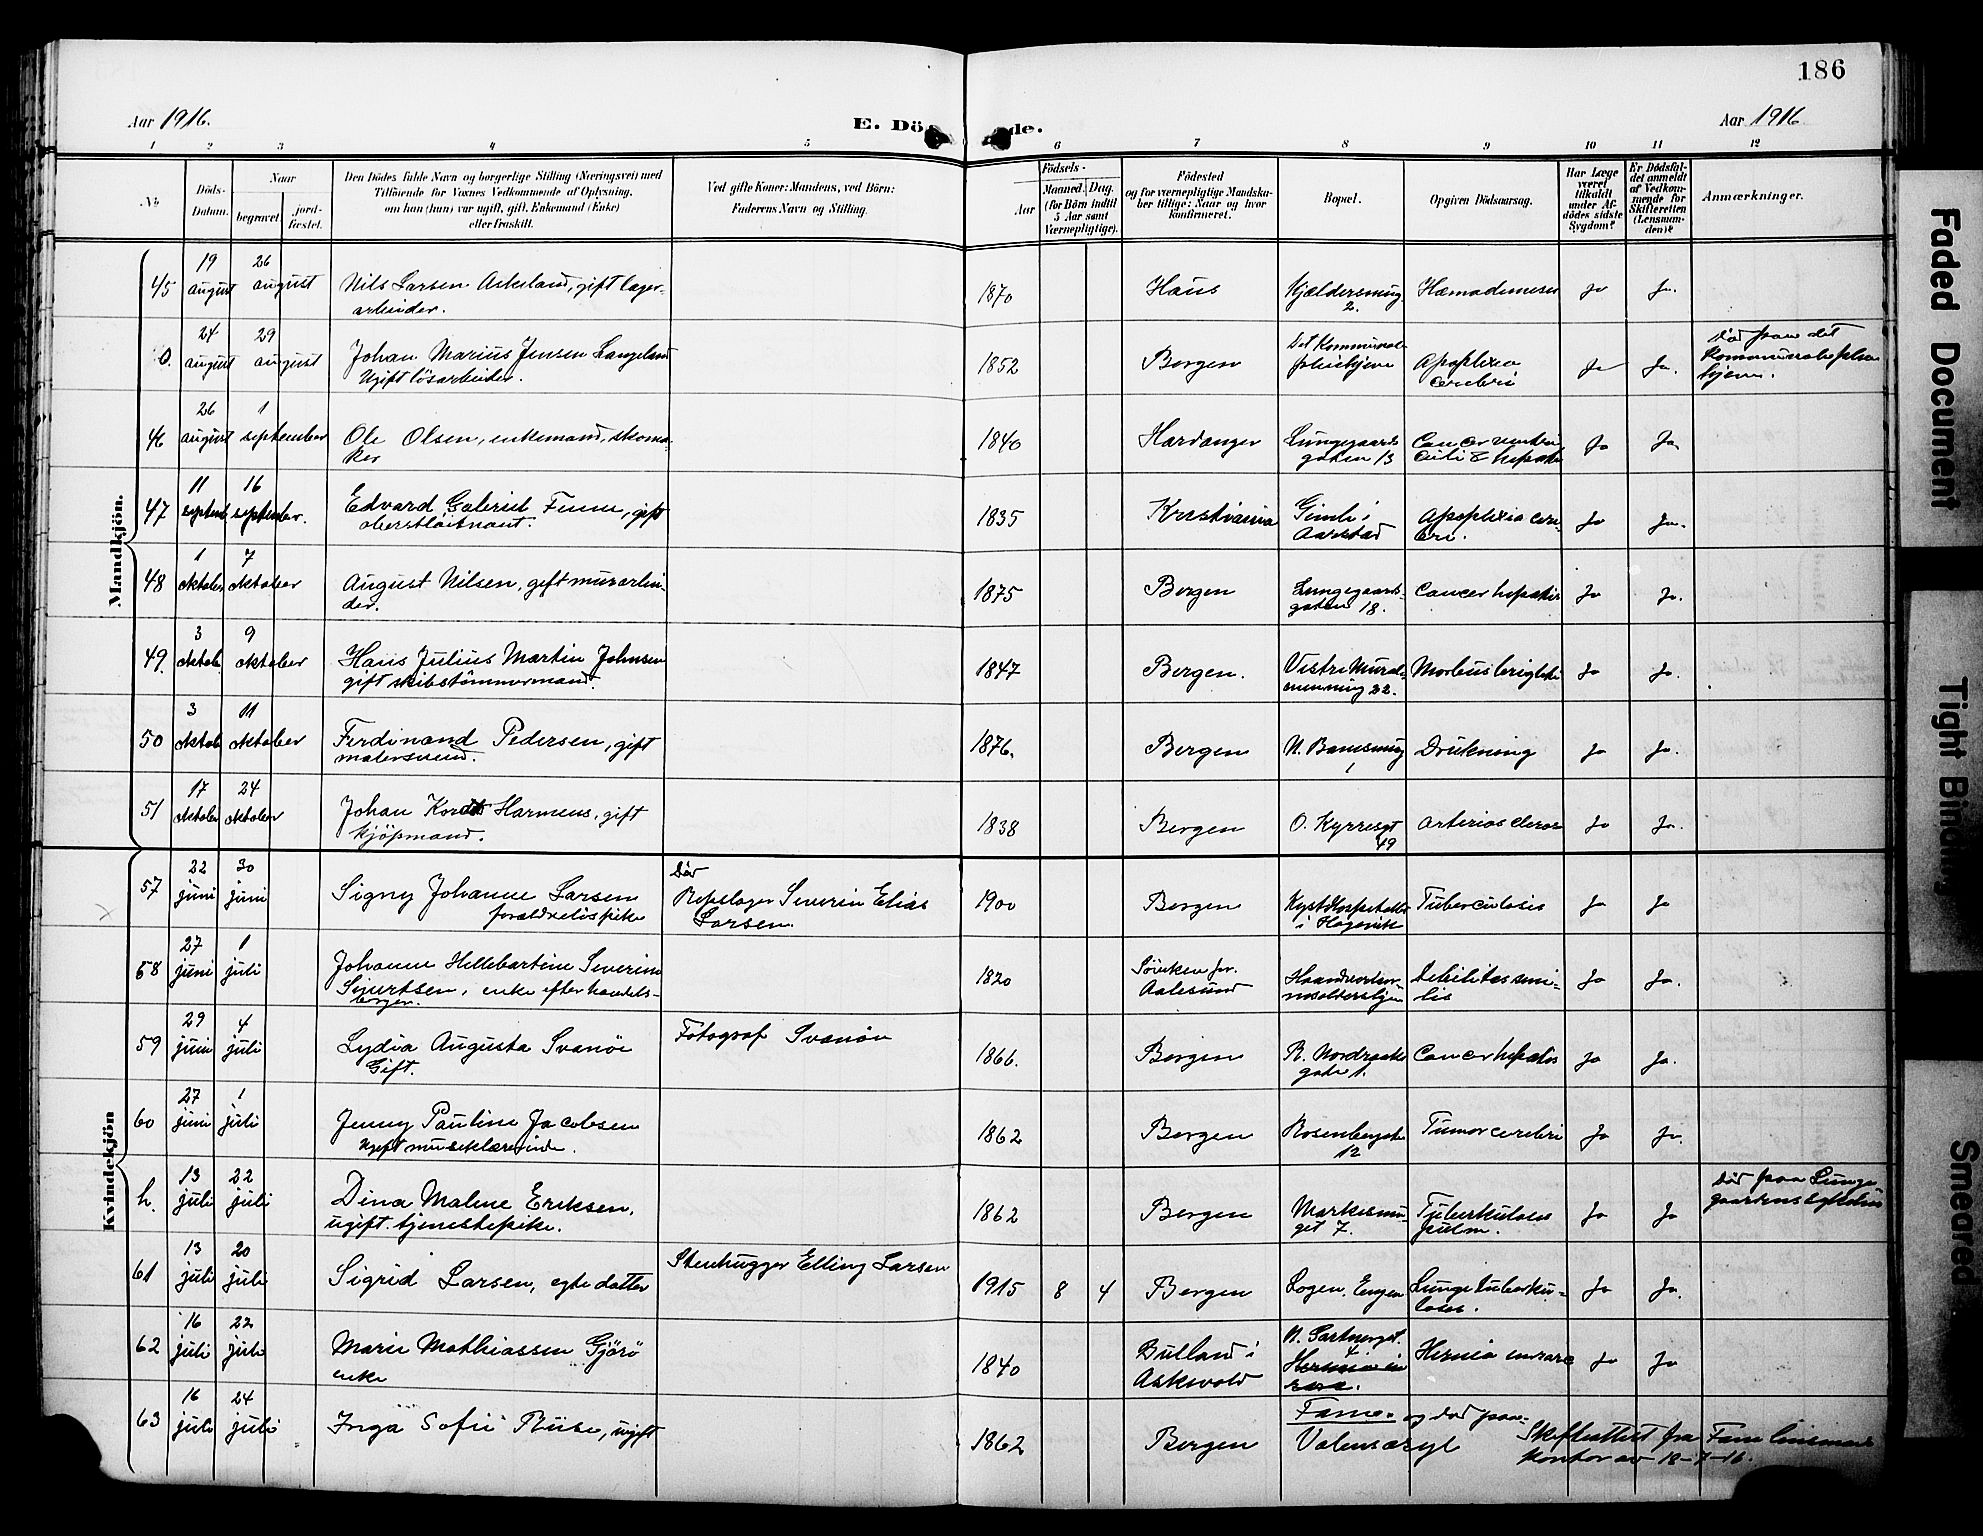 186
Aar 1916.
E. Dö de.
Aar 1916
1 2 3 4 5 6 7 8 9 10 11 12
No
Döds-Datum.
Naar
begravet.
jord-fæstet.
Den Dödes fulde Navn og borgerlige Stilling (Næringsvei) med
Tilföiende for Voxnes Vedkommende af Oplysning,
om han (hun) var ugift, gift, Enkemand (Enke)
eller fraskilt.
Ved gifte Koner: Mandens, ved Börn:
Faderens Navn og Stilling.
Födsels-
Aar
Maaned. Dag.
(for Börn indtil
5 Aar samt
Værnepligtige).
Födested
og for værnepligtige Mandska-
ber tillige: Naar og hvor
konfirmeret.
Bopæl.
Opgiven Dödsaarsag.
Har Læge
været
tilkaldt
under Af-
dödes sidste
Sygdom?
Er Dödsfal-
det anmeldt
af Vedkom-
mende for
Skifteretten
(Lensman-
den)?
Anmærkninger.
Mandkjön.
45 19 august 26 august Nils Larsen Askeland, gift lager-
arbeider. 1870 Haus Kjældersmug 2. Ja Ja.
0. 24 august 29 august Johan Marius Jensen Langeland
Ugift lösarbeider. 1852 Bergen Det Kommunale pleiehjem Apoplexia cerebri Ja Ja. Död paa det
Kommunale pleie
hjem.
46 26 august 1 september Ole Olsen, enkemand, skoma-
ker 1840 Hardanger Lungegaards gaten 13 Cancer ventri culi & hepatis Ja Ja
47 11 septemb 16 september. Edvard Gabriel Finne, gift
oberstlöitnant. 1835 Kristiania Gimle i Aarstad Apoplexia cere- bri. Ja Ja.
48 1 oktober 7 oktober August Nilsen, gift murarbei-
der. 1875 Bergen Lungegaards- gaten 18. Cancer hepatis Ja Ja.
49. 3 oktob 9 oktober Hans Julius Martin Johnsen
gift skibstömmermand. 1847 Bergen. Vestre Mural- menning 22. Morbus brightii Ja Ja.
50 3 oktob 11 oktober Ferdinand Pedersen, gift
malersvend. 1876. Bergen 1 Drukning Ja Ja.
51 17 oktober 24 oktober Johan Harmens, gift
kjöpmand. 1838 Bergen O. Kyrresgt 49 Arterioscleros Ja Ja.
Kvindekjön
57 22 juni 30 juni Signy Johanne Larsen
forældrelös pike Död
Repslager Severin Elias
Larsen. 1900 Bergen Kysthospitalet i Hagevik Tuberculosis Ja Ja
58 27 juni 1 juli Johanne Hillebartine Severine
Sivertsen, enke efter handels-
borger. 1820 for. Aalesund Debilitas seni- lis Ja Ja.
59 29 juni 4 juli Lydia Augusta Svanöe
Gift. Fotograf Svanöe 1866. Bergen R. Nordraaks gate 1. Cancer hepatis Ja Ja.
60 27 juni 1 juli Jenny Pauline Jacobsen
Ugift musiklærerinde. 1862 Bergen Rosenbergsgt 12 Tumor cerebri Ja Ja.
h. 13 juli 22 juli Dina Malene Eriksen,
ugift. tjenestepike. 1862 Bergen Markesmu- get 7. Tuberkulosis pulm. Ja Ja Död paa Lunge
gaardens
61 13 juli 20 juli Sigrid Larsen, egte datter Stenhugger Elling Larsen 1915 8 4 Bergen Logen, Engen Lungetuberku- lose. Ja Ja.
62 16 juli 22 juli Marie Mathiassen Gjörö
enke 1840 Bulland i Askevold 4 Hernia Ja Ja
63 16 juli 24 juli Inga Sofie Riise, ugift 1862 Bergen Fane. og död paa Valensvægt Skifteattest fra Fane lensmans
kontor av 18-7-16.
Faded Document
Tight Binding
Smeared